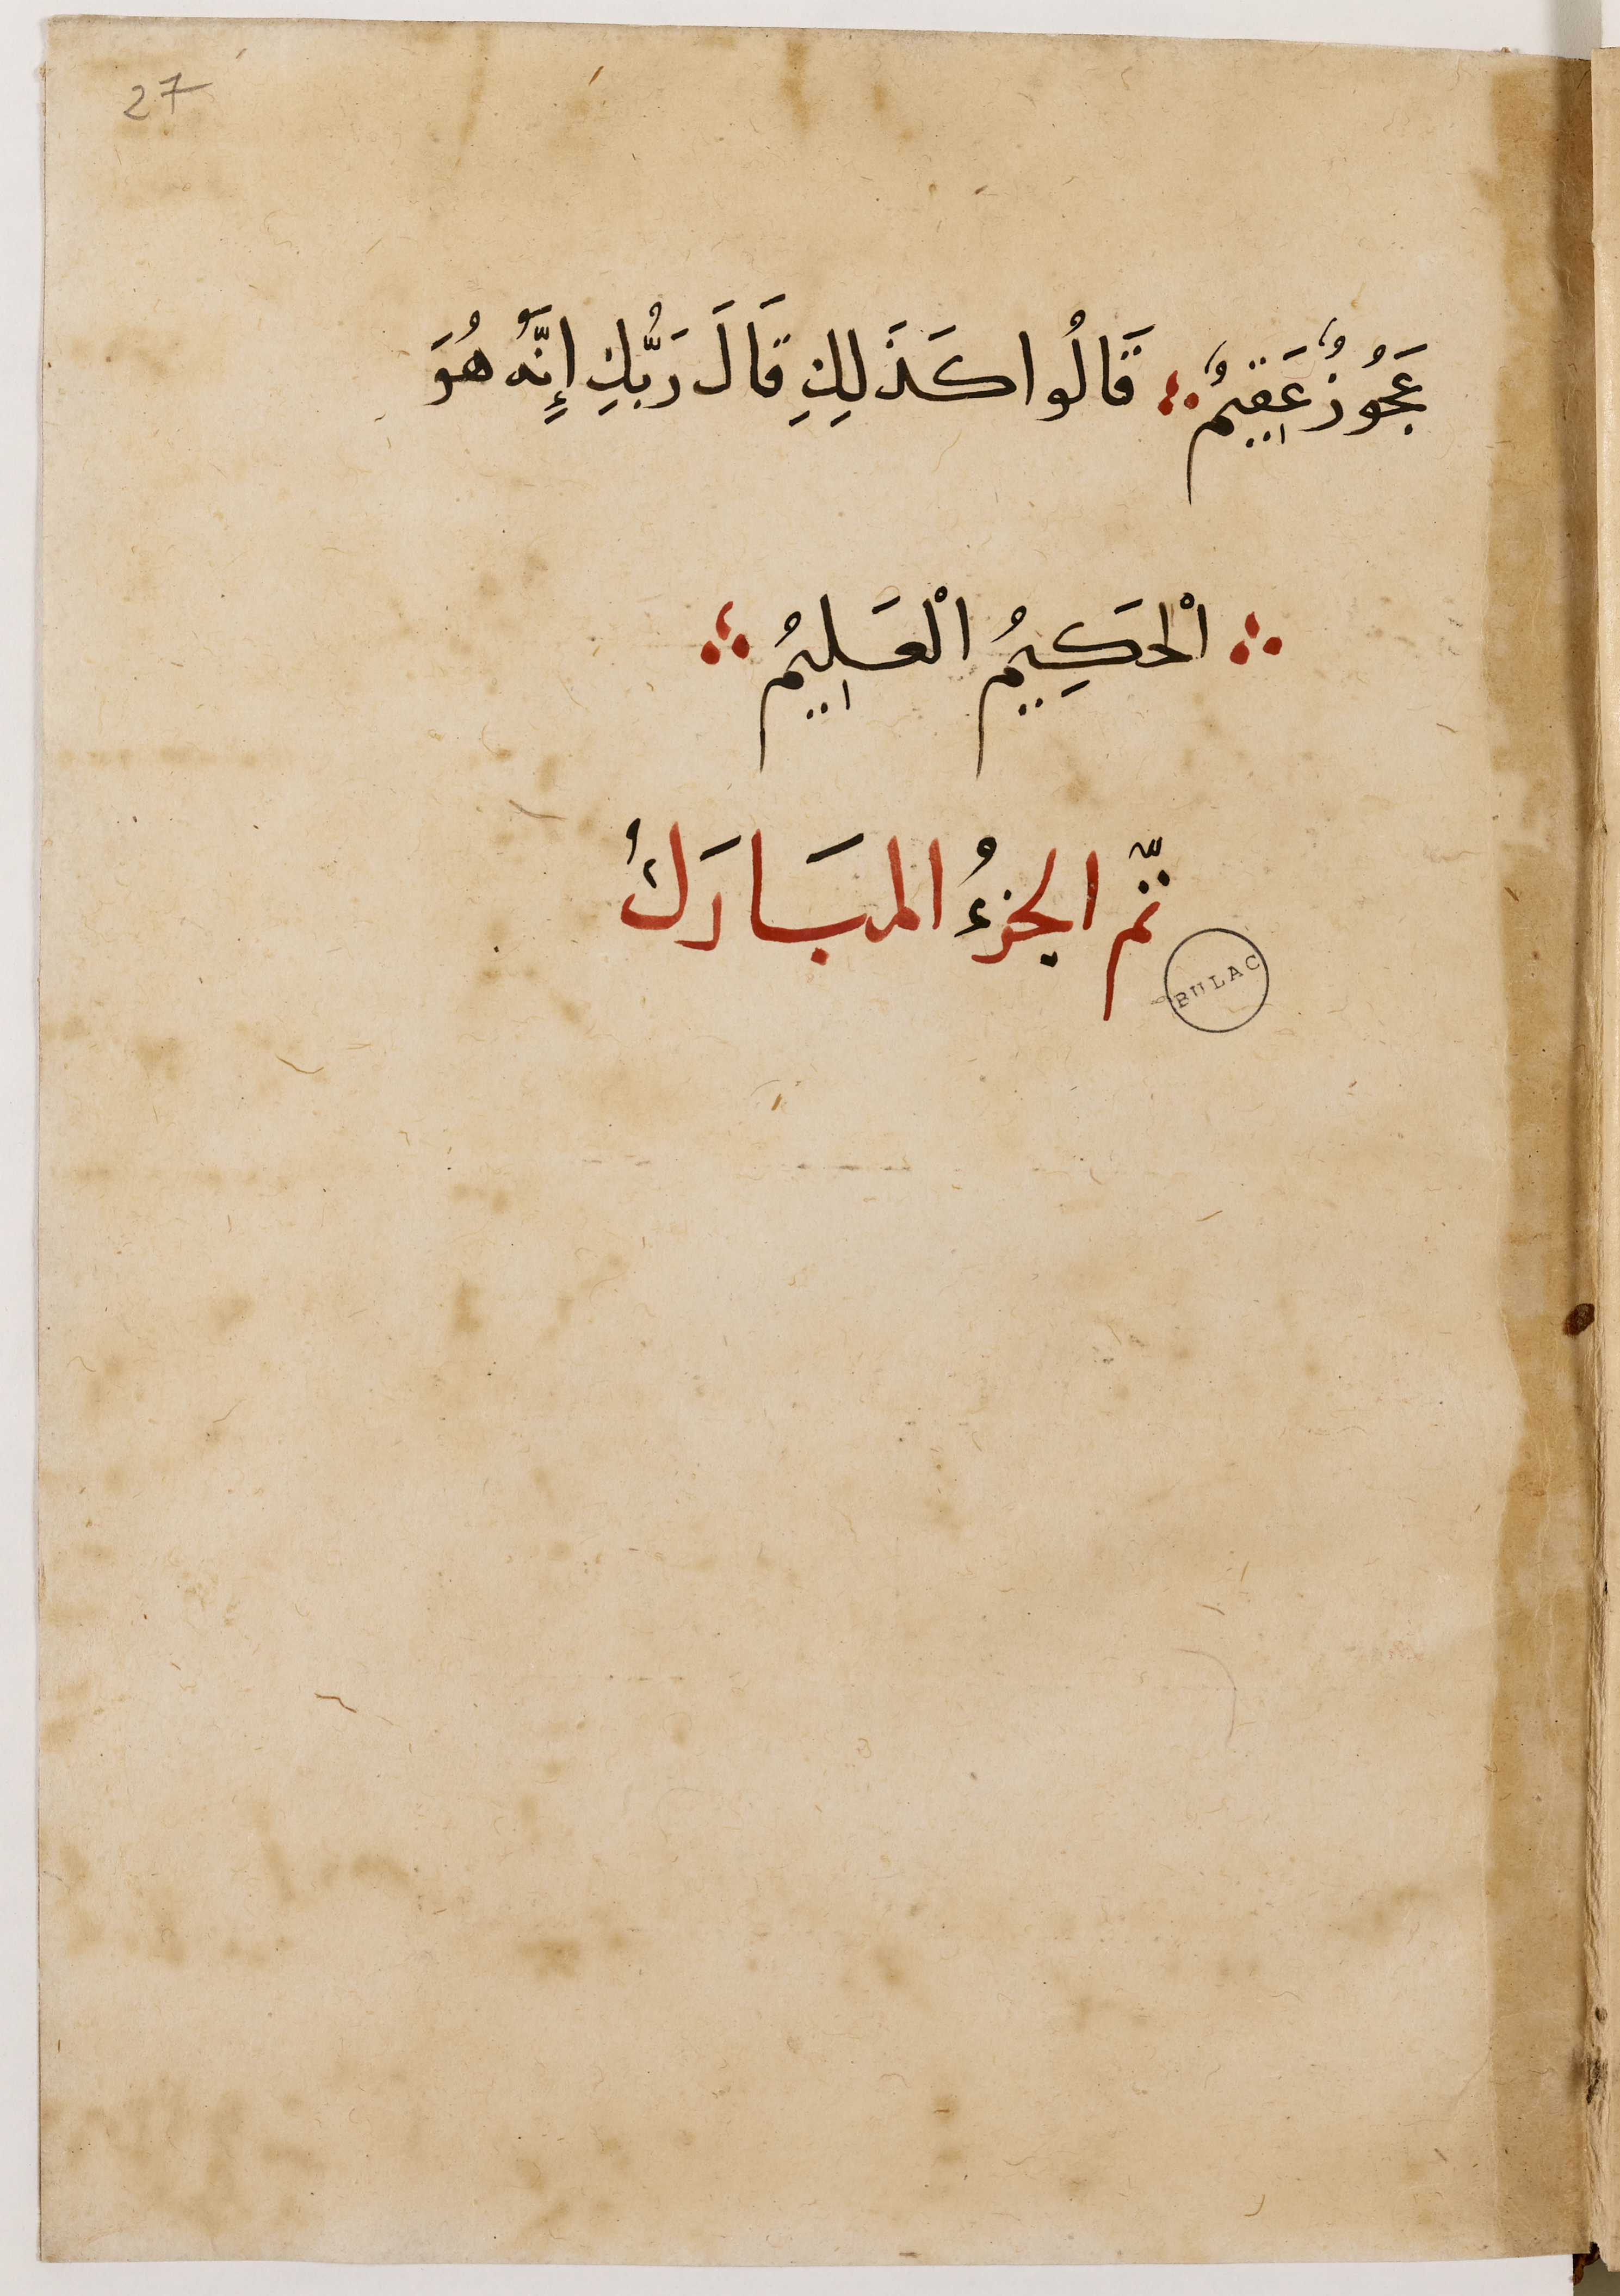 27
عَجُوزٌ عَقِيمٌ ؞ قَالُوا كَذَلِكِ قَالَ رَبُّكِ إِنَّهُ هُوَ
؞ الْحَكِيمُ الْعَلِيمُ ؞
تمَّ الجزءُ المبَارَكُ
BULAC